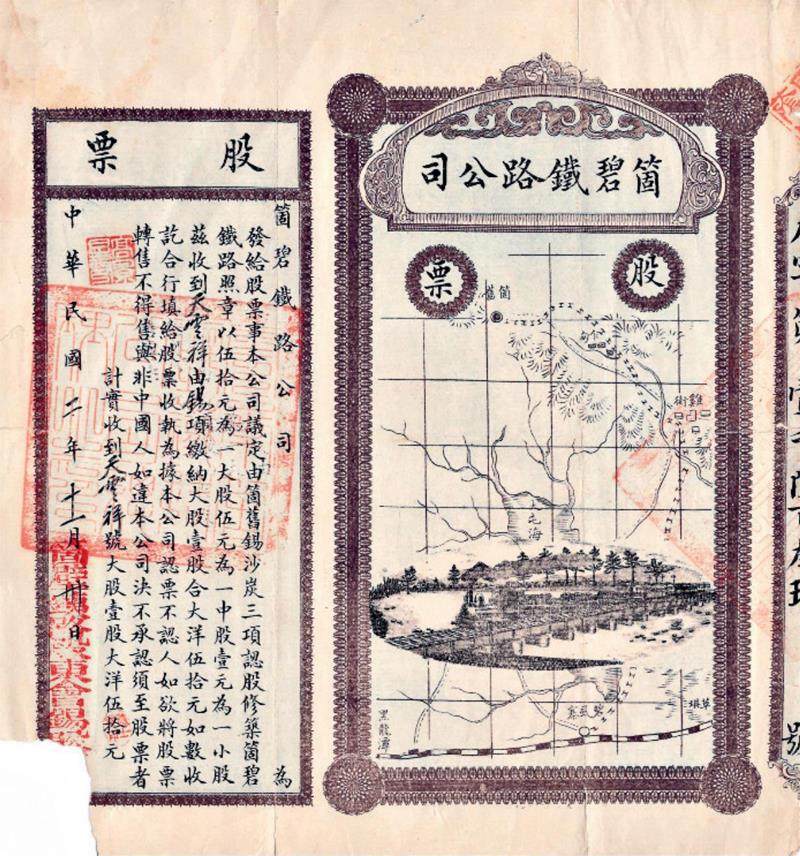 箇碧鐵路公司
股票
箇舊
雞街
屯海
碧虱寨
草壩
黑龍潭
股票
箇碧鐵路公司 為
發給股票事本公司議定由箇舊錫沙炭三項認股修築箇碧
鐵路照章以伍拾元為一大股伍元為一中股壹元為一小股
茲收到天雲祥由錫項繳納大股壹股合大洋伍拾元如數收
訖合行填給股票收執為據本公司認票不認人如欲將股票
轉售不得售與非中國人如違本公司決不承認須至股票者
計實收到天雲祥號大股壹股大洋伍拾元
中華民國二年十一月卅日
號